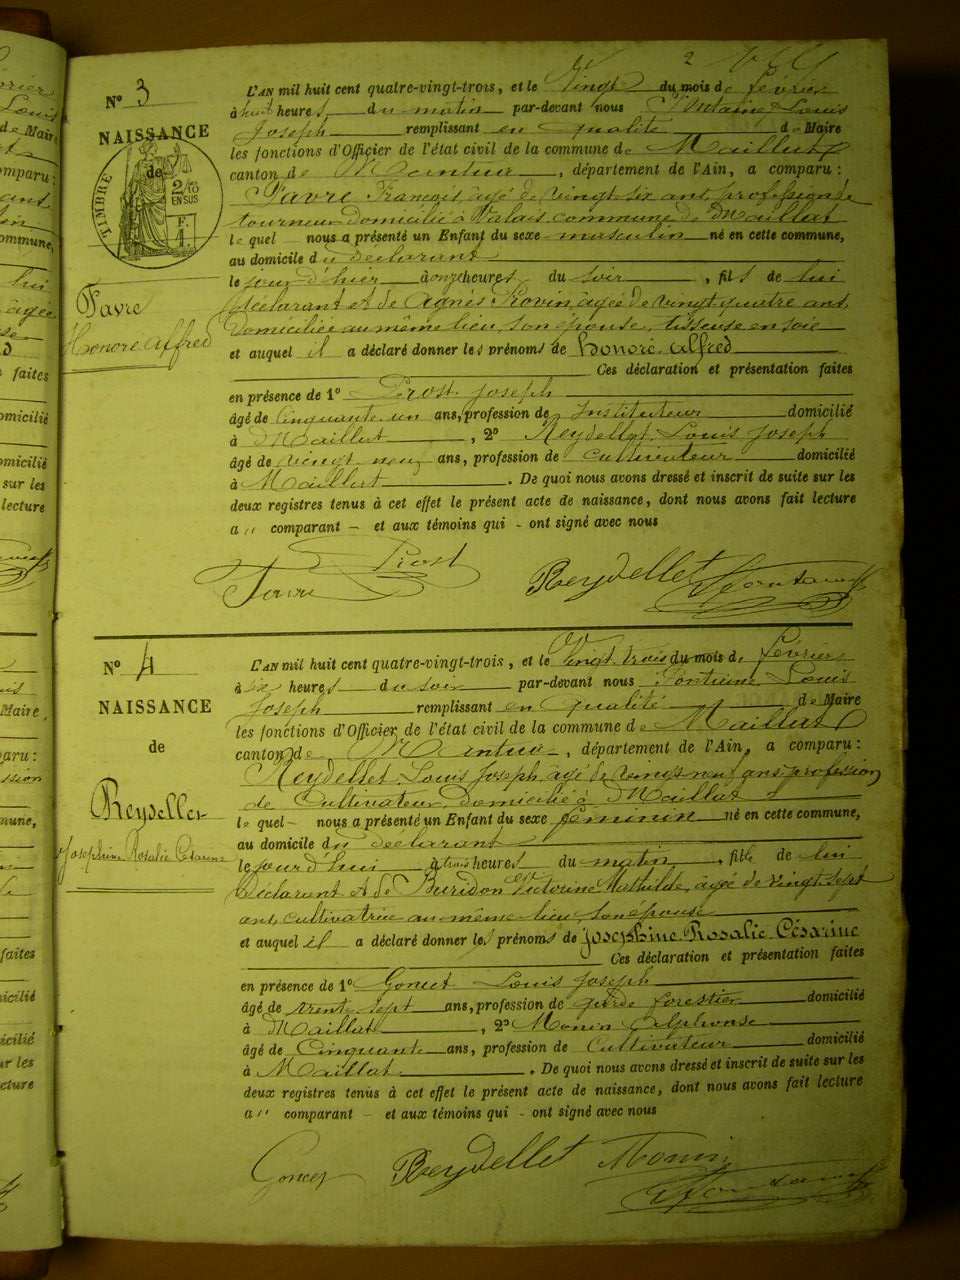 2
N° 3
NAISSANCE
de
TIMBRE
2/10
EN SUS
F.
Favre
Honoré Alfred
L'AN mil huit cent quatre-vingt-trois, et le Vingt du mois de février
à huit heures du matin par-devant nous Fontaine Louis
Joseph remplissant en qualité de Maire
les fonctions d'Officier de l'état civil de la commune de Maillat
canton de Nantua, département de l'Ain, a comparu :
Favre François âgé de vingt six ans profession de
tourneur domicilié à Valais commune de Maillat
le quel nous a présenté un Enfant du sexe masculin né en cette commune,
au domicile du déclarant
le jour d'hier à onze heures du soir, fils de lui
déclarant et de Agnès Rovin âgée de vingt quatre ans,
domiciliée au même lieu, son épouse, tisseuse en soie
et auquel il a déclaré donner les prénoms de Honoré Alfred
Ces déclaration et présentation faites
en présence de 1° Prost Joseph
âgé de cinquante un ans, profession de Instituteur domicilié
à Maillat, 2° Reydellet Louis Joseph
âgé de vingt neuf ans, profession de cultivateur domicilié
à Maillat. De quoi nous avons dressé et inscrit de suite sur les
deux registres tenus à cet effet le présent acte de naissance, dont nous avons fait lecture
a " comparant – et aux témoins qui - ont signé avec nous
Favre Prost Reydellet Fontaine
N° 4
NAISSANCE
de
Reydellet
Josephine Rosalie Césarine
L'AN mil huit cent quatre-vingt-trois, et le Vingt trois du mois de février
à six heures du soir par-devant nous Fontaine Louis
Joseph remplissant en qualité de Maire
les fonctions d'Officier de l'état civil de la commune de Maillat
canton de Nantua, département de l'Ain, a comparu :
Reydellet Louis Joseph âgé de vingt neuf ans profession
de Cultivateur, domicilié à Maillat
le quel – nous a présenté un Enfant du sexe féminin né en cette commune,
au domicile du déclarant
le jour d'hui à trois heures du matin, fille de lui
déclarant et de Buridon Victorine Mathilde, âgée de vingt sept
ans, cultivatrice au même lieu, son épouse
et auquel il a déclaré donner les prénoms de Josephine Rosalie Césarine
Ces déclaration et présentation faites
en présence de 1° Goncet Louis Joseph
âgé de trente sept ans, profession de garde forestier domicilié
à Maillat, 2° Monin Alphonse
âgé de Cinquante ans, profession de Cultivateur domicilié
à Maillat. De quoi nous avons dressé et inscrit de suite sur les
deux registres tenus à cet effet le présent acte de naissance, dont nous avons fait lecture
a " comparant – et aux témoins qui - ont signé avec nous
Goncet Reydellet Monin Fontaine